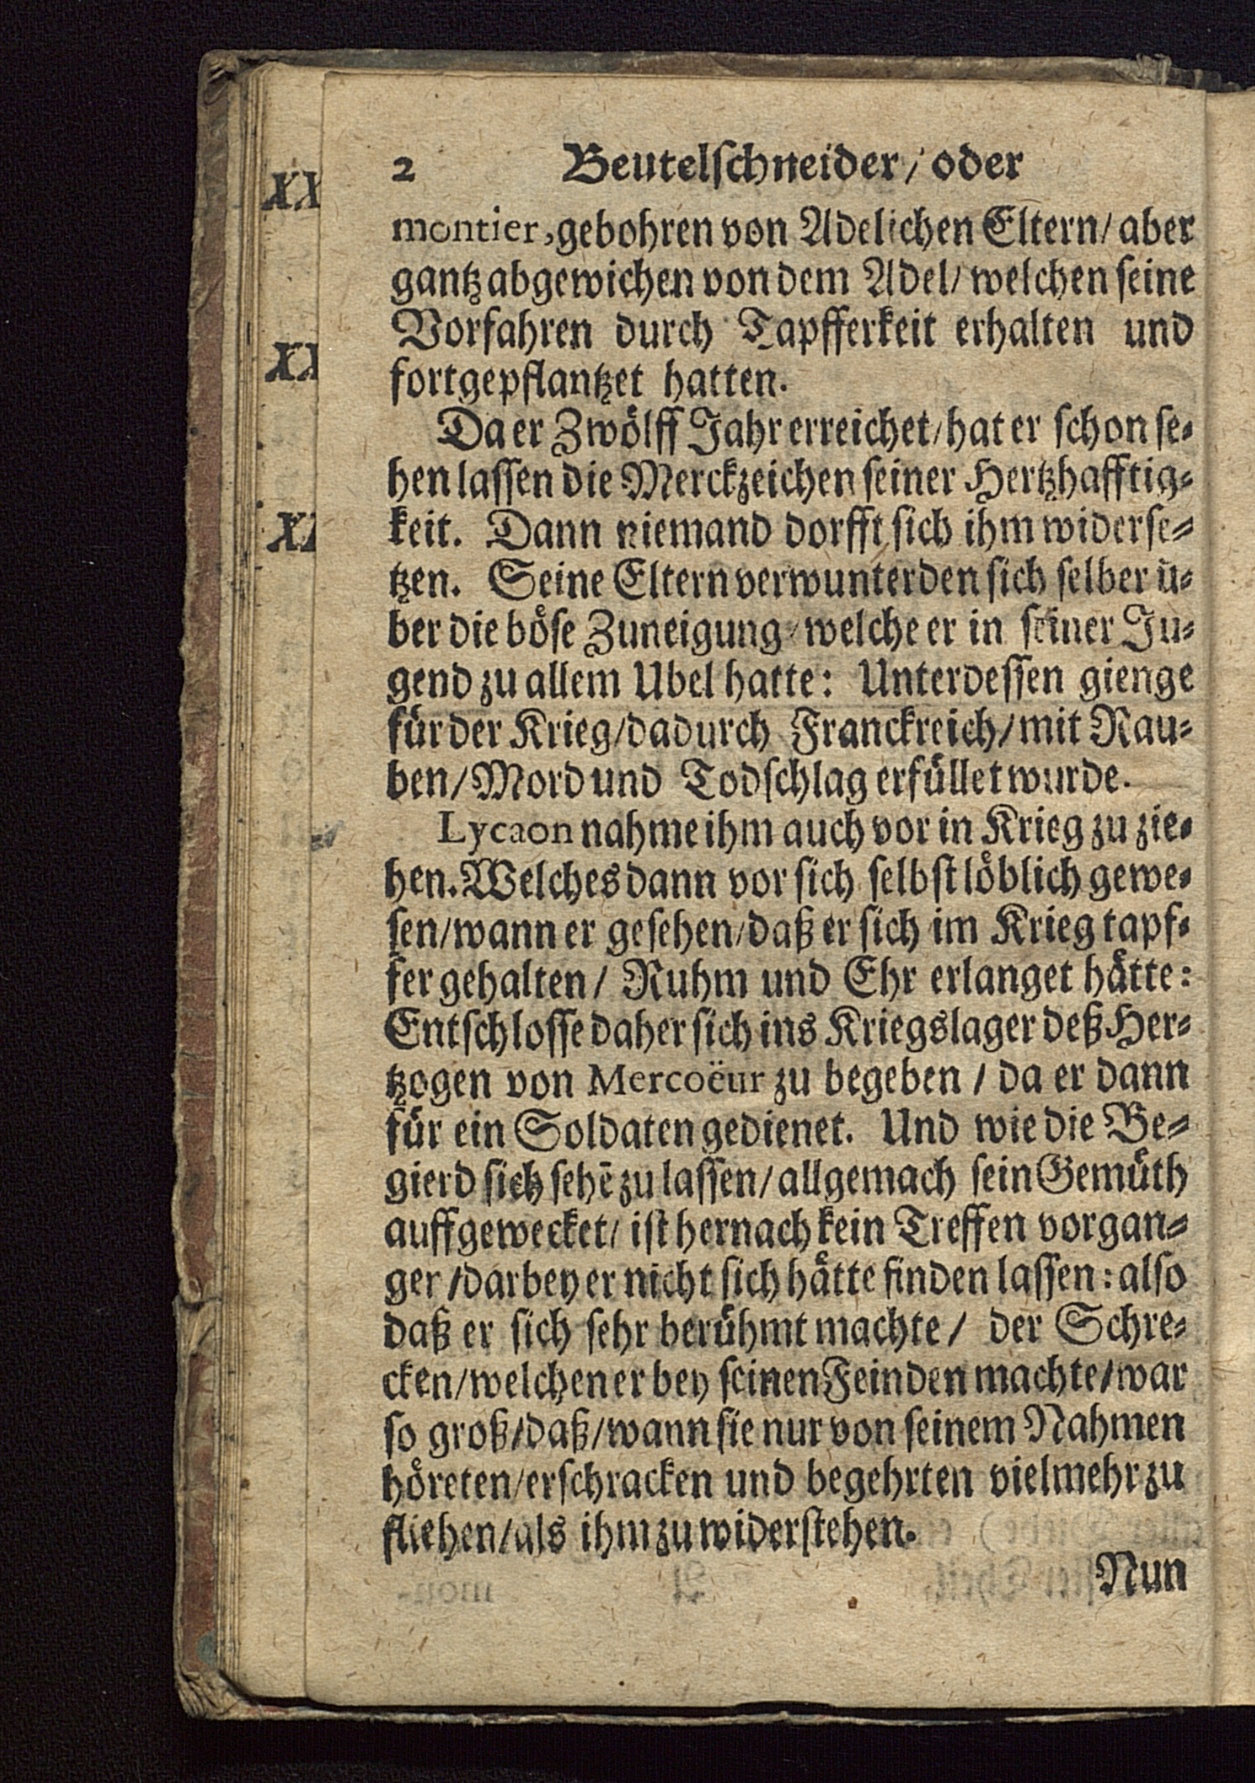 2 Beutelschneider/ oder
montier, gebohren von Adelichen Eltern/ aber
gantz abgewichen von dem Adel/ welchen seine
Vorfahren durch Tapfferkeit erhalten und
fortgepflantzet hatten.
Da er Zwölff Jahr erreichet/ hat er schon se-
hen lassen die Merckzeichen seiner Hertzhafftig-
keit. Dann niemand dorfft sich ihm widerse-
tzen. Seine Eltern verwunterden sich selber ü-
ber die böse Zuneigung/ welche er in seiner Ju-
gend zu allem Ubel hatte: Unterdessen gienge
für der Krieg/ dadurch Franckreich/ mit Rau-
ben/ Mord und Todschlag erfüllet wurde.
Lycaon nahme ihm auch vor in Krieg zu zie-
hen. Welches dann vor sich selbst löblich gewe-
sen/ wann er gesehen/ daß er sich im Krieg tapf-
fer gehalten/ Ruhm und Ehr erlanget hätte:
Entschlosse daher sich ins Kriegslager deß Her-
tzogen von Mercoëur zu begeben / da er dann
für ein Soldaten gedienet. Und wie die Be-
gierd sich sehē zu lassen/ allgemach sein Gemüth
auffgewecket/ ist hernach kein Treffen vorgan-
ger / darbey er nicht sich hätte finden lassen: also
daß er sich sehr berühmt machte/ der Schre-
cken/ welchen er bey seinen Feinden machte/ war
so groß/ daß/ wann sie nur von seinem Nahmen
höreten/ erschracken und begehrten vielmehr zu
fliehen/ als ihm zu widerstehen.
Nun
XX
XX
XX